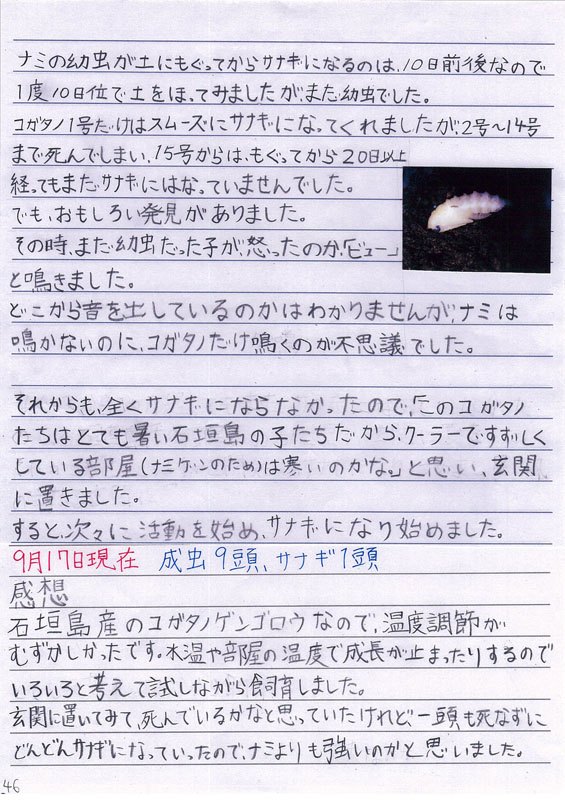 ナミの幼虫が土にもぐってからサナギになるのは、10日前後なので
1度10日位で土をほってみましたが、まだ幼虫でした。
コガタノ1号だけはスムーズにサナギになってくれましたが、2号〜14号
まで死んでしまい、15号からは、もぐってから20日以上
経ってもまだサナギにはなっていませんでした。
でも、おもしろい発見がありました。
その時、まだ幼虫だった子が、怒ったのか、「ビュー」
と鳴きました。
どこから音を出しているのかはわかりませんが、ナミは
鳴かないのに、コガタノだけ鳴くのが不思議でした。
それからも、全くサナギにならなかったので、「このコガタノ
たちはとても暑い石垣島の子たちだから、クーラーですずしく
している部屋(ナミゲンのため)は寒いのかな。」と思い、玄関
に置きました。
すると、次々に活動を始め、サナギになり始めました。
9月17日現在 成虫9頭、サナギ1頭
感想
石垣島産のコガタノゲンゴロウなので、温度調節が
むずかしかったです。水温や部屋の温度で成長が止まったりするので
いろいろと考えて試しながら飼育しました。
玄関に置いてみて、死んでいるかなと思っていたけれど、一頭も死なずに
どんどんサナギになっていったので、ナミよりも強いのかと思いました。
46